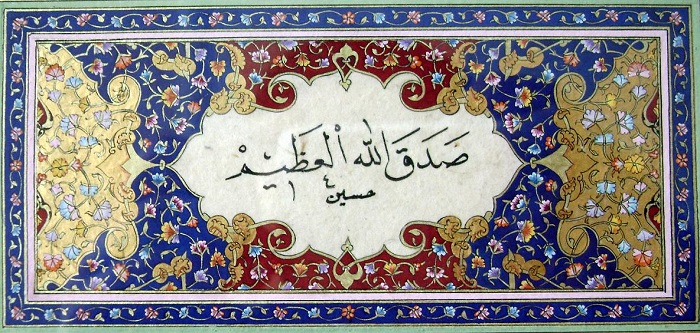 صَدَقَ اللّٰه الْعَظِيْمْ
حسين